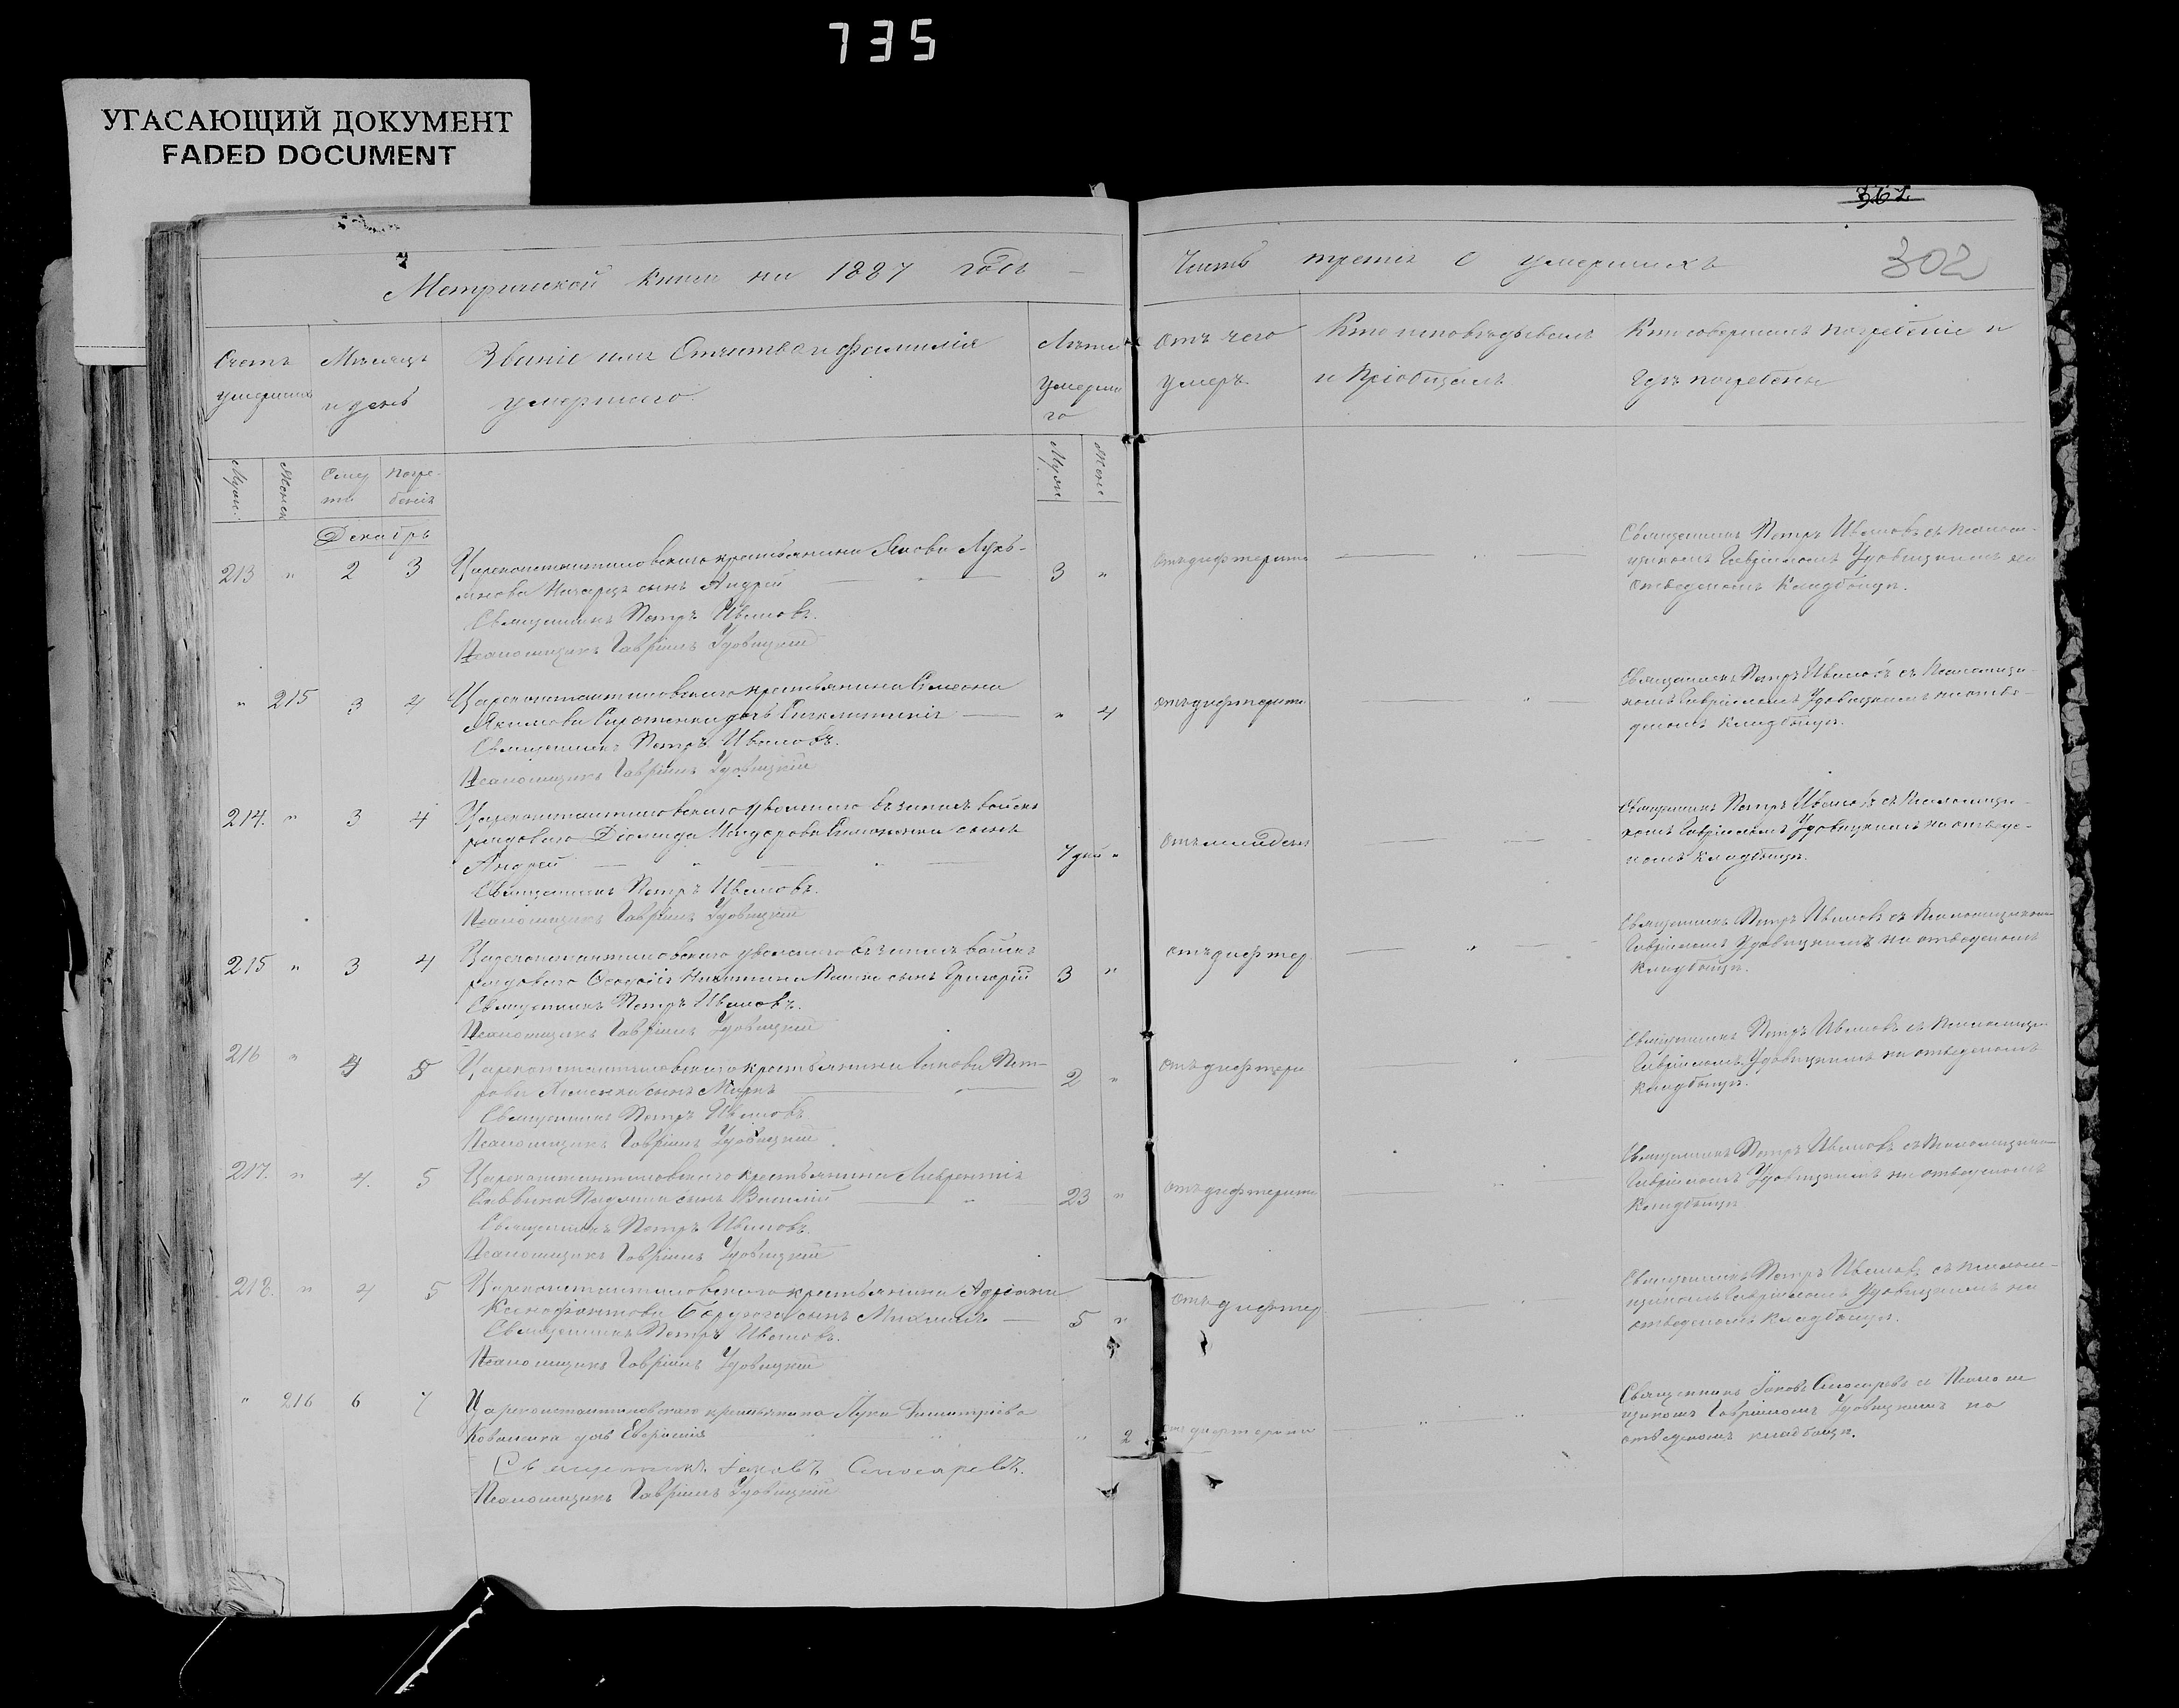 735
УГАСАЮЩИЙ ДОКУМЕНТ
FADED DOCUMENT
362
302
Метрической книги на 1887 годъ
Часть третія о умершихъ
Счетъ умершихъ
Мѣсяцъ и день
Званіе имя Отчество и фамилія умершаго.
Лѣта умершаго
Отъ чего умеръ.
Кто исповѣдывалъ и пріобщалъ
Кто совершалъ погребеніе и гдѣ погребены
Муж. Женск Смерти Погребенія
Муж Жен
Декабрь
213 " 2 3 Цареконстантиновскаго крестьянина Якова Лукьянова сынъ Андрей 3 " отъ дифтерита
Священникъ Петръ Ивановъ.
Псаломщикъ Гавріилъ Удовицкій
Священникъ Петръ Ивановъ съ псаломщикомъ Гавріиломъ Удовицкимъ на
отведеномъ кладбищѣ.
" 215 3 4 Цареконстантиновскаго крестьянина Симеона
Якимова Сиротенка дочь " 4 отъ дифтерита
Священникъ Петръ Ивановъ.
Псаломщикъ Гавріилъ Удовицкій
Священникъ Петръ Ивановъ съ псаломщикомъ Гавріиломъ Удовицкимъ на отведеномъ кладбищѣ.
214. " 3 4 Цареконстантиновскаго уволенаго въ запасъ войскъ
рядоваго Діомида сынъ
Андрей 7 дней "
Священникъ Петръ Ивановъ.
Псаломщикъ Гавріилъ Удовицкій
Священникъ Петръ Ивановъ съ псаломщикомъ Гавріиломъ Удовицкимъ на отведеномъ кладбищѣ.
215 " 3 4 Цареконстантиновскаго уволенаго въ запасъ войскъ
рядоваго сынъ Григорій 3 " отъ дифтер
Священникъ Петръ Ивановъ.
Псаломщикъ Гавріилъ Удовицкій
Священникъ Петръ Ивановъ съ псаломщикомъ
Гавріиломъ Удовицкимъ на отведеномъ
кладбищѣ.
216 " 4 5 Цареконстантиновскаго крестьянина Петрова сынъ Маркъ 2 " отъ дифтери
Священникъ Петръ Ивановъ
Псаломщикъ Гавріилъ Удовицкій
Священникъ Петръ Ивановъ съ псаломщик
Гавріиломъ Удовицкимъ на отведеномъ
кладбищѣ.
217. " 4. 5 Цареконстантиновскаго крестьянина Лаврентія
Саввина сынъ Василій 23 " отъ дифтерита
Священникъ Петръ Ивановъ.
Псаломщикъ Гавріилъ Удовицкій
Священникъ Петръ Ивановъ съ псаломщико
Гавріиломъ Удовицкимъ на отведеномъ
кладбищѣ
218. " 4 5 Цареконстантиновскаго крестьянина Адріана
Ксенофонтова сынъ Михаилъ 5 " отъ дифтер
Священникъ Петръ Ивановъ.
Псаломщикъ Гавріилъ Удовицкій
Священникъ Петръ Ивановъ съ псаломщикомъ Гавріиломъ Удовицкимъ на
отведеномъ кладбищѣ.
" 216 6 7 Цареконстантиновскаго крестьянина Луки Димитріева
Коваленка дочь Евфросинія " 2 дифтерита
Священникъ Іаковъ Слюсаревъ.
Псаломщикъ Гавріилъ Удовицкій
Священникъ Іаковъ Слюсаревъ съ Псаломщикомъ Гавріиломъ Удовицкимъ на
отведеномъ кладбищѣ.